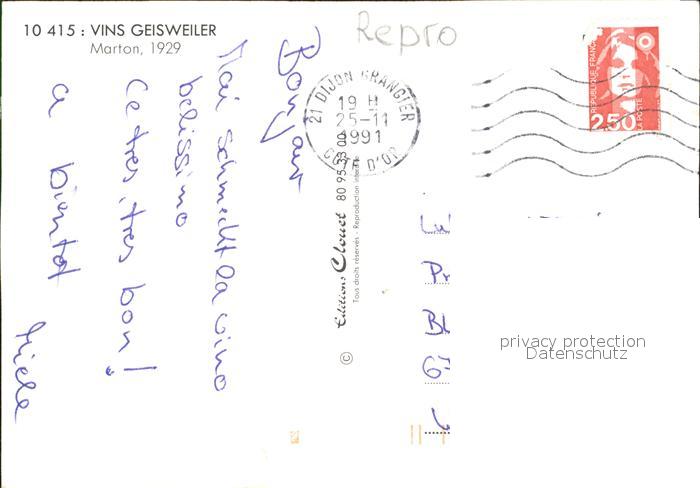 10 415 : VINS GEISWEILER
Marton, 1929
Repro
Bonjour
Mai schmeckt la vino
belissimo
Ce tres, tres bon!
a bientot
21 DIJON GRANGIER
19 H
25-11
1991
COTE D'OR
REPUBLIQUE FRANÇAISE
LA POSTE
2,50
© Editions Clouet 80 95 33 00
Tous droits réservés - Reproduction interdite
privacy protection
Datenschutz